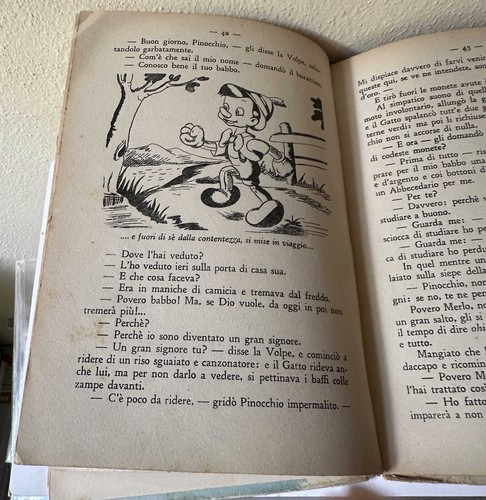 — 42 —
— Buon giorno, Pinocchio, — gli disse la Volpe, salu-
tandolo garbatamente.
— Com'è che sai il mio nome — domandò il burattino.
— Conosco bene il tuo babbo.
.... e fuori di sè dalla contentezza, si mise in viaggio....
— Dove l'hai veduto?
— L'ho veduto ieri sulla porta di casa sua.
— E che cosa faceva?
— Era in maniche di camicia e tremava dal freddo.
— Povero babbo! Ma, se Dio vuole, da oggi in poi non
tremerà più!...
— Perchè?
— Perchè io sono diventato un gran signore.
— Un gran signore tu? — disse la Volpe, e cominciò a
ridere di un riso sguaiato e canzonatore: e il Gatto rideva an-
che lui, ma per non darlo a vedere, si pettinava i baffi colle
zampe davanti.
— C'è poco da ridere, — gridò Pinocchio impermalito. —
— 43
Mi dispiace davvero di farvi venir
queste qui, se ve ne intendete, sono
d'oro. —
E tirò fuori le monete avute i
Al simpatico suono di quell
moto involontario, allungò la g
e il Gatto spalancò tutt'e due g
terne verdi: ma poi li richiuse
chio non si accorse di nulla.
— E ora — gli domandò
di codeste monete?
— Prima di tutto — ris
prare per il mio babbo una
e d'argento e coi bottoni d
un Abbecedario per me.
— Per te?
— Davvero: perchè v
studiare a buono.
— Guarda me: —
sciocca di studiare ho per
— Guarda me —
di studiare ho perdu
In quel mentre un
laiato sulla siepe della
— Pinocchio, non
gni: se no, te ne pen
Povero Merlo, non
un gran salto, gli si
il tempo di dire ohi
e tutto.
Mangiato che l
daccapo e ricomin
— Povero M
l'hai trattato così
— Ho fatto
imparerà a non